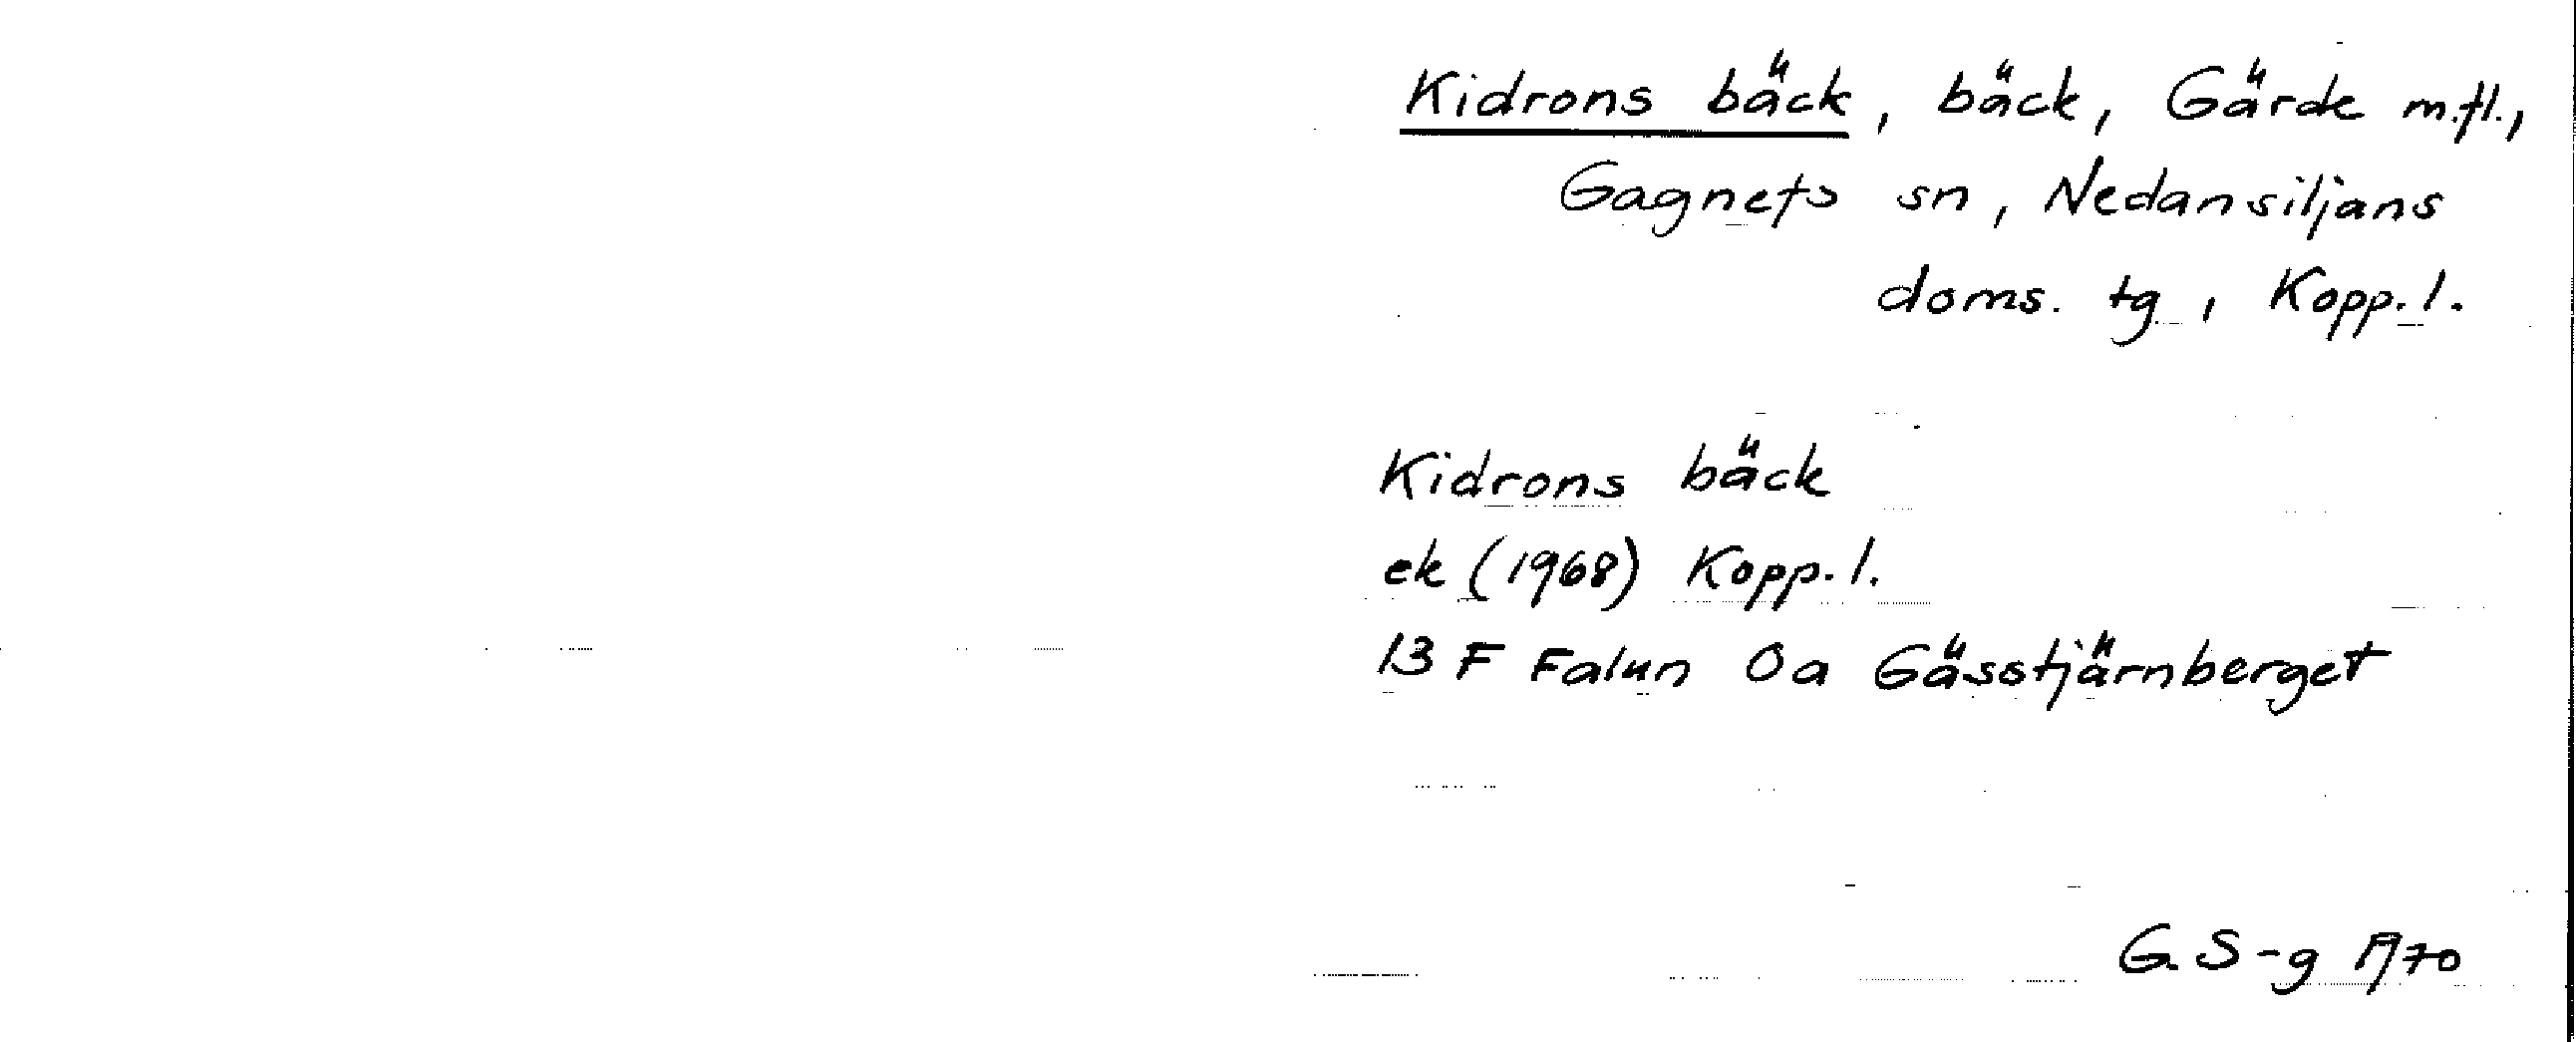 Kidrons bäck, bäck, Gärde m.fl.,
Gagnefs sn, Nedansiljans
doms. tg, Kopp. l.
Kidrons bäck
ek (1968) Kopp. l.
13 F Falun 0a Gässtjärnberget
G. S-g 1970